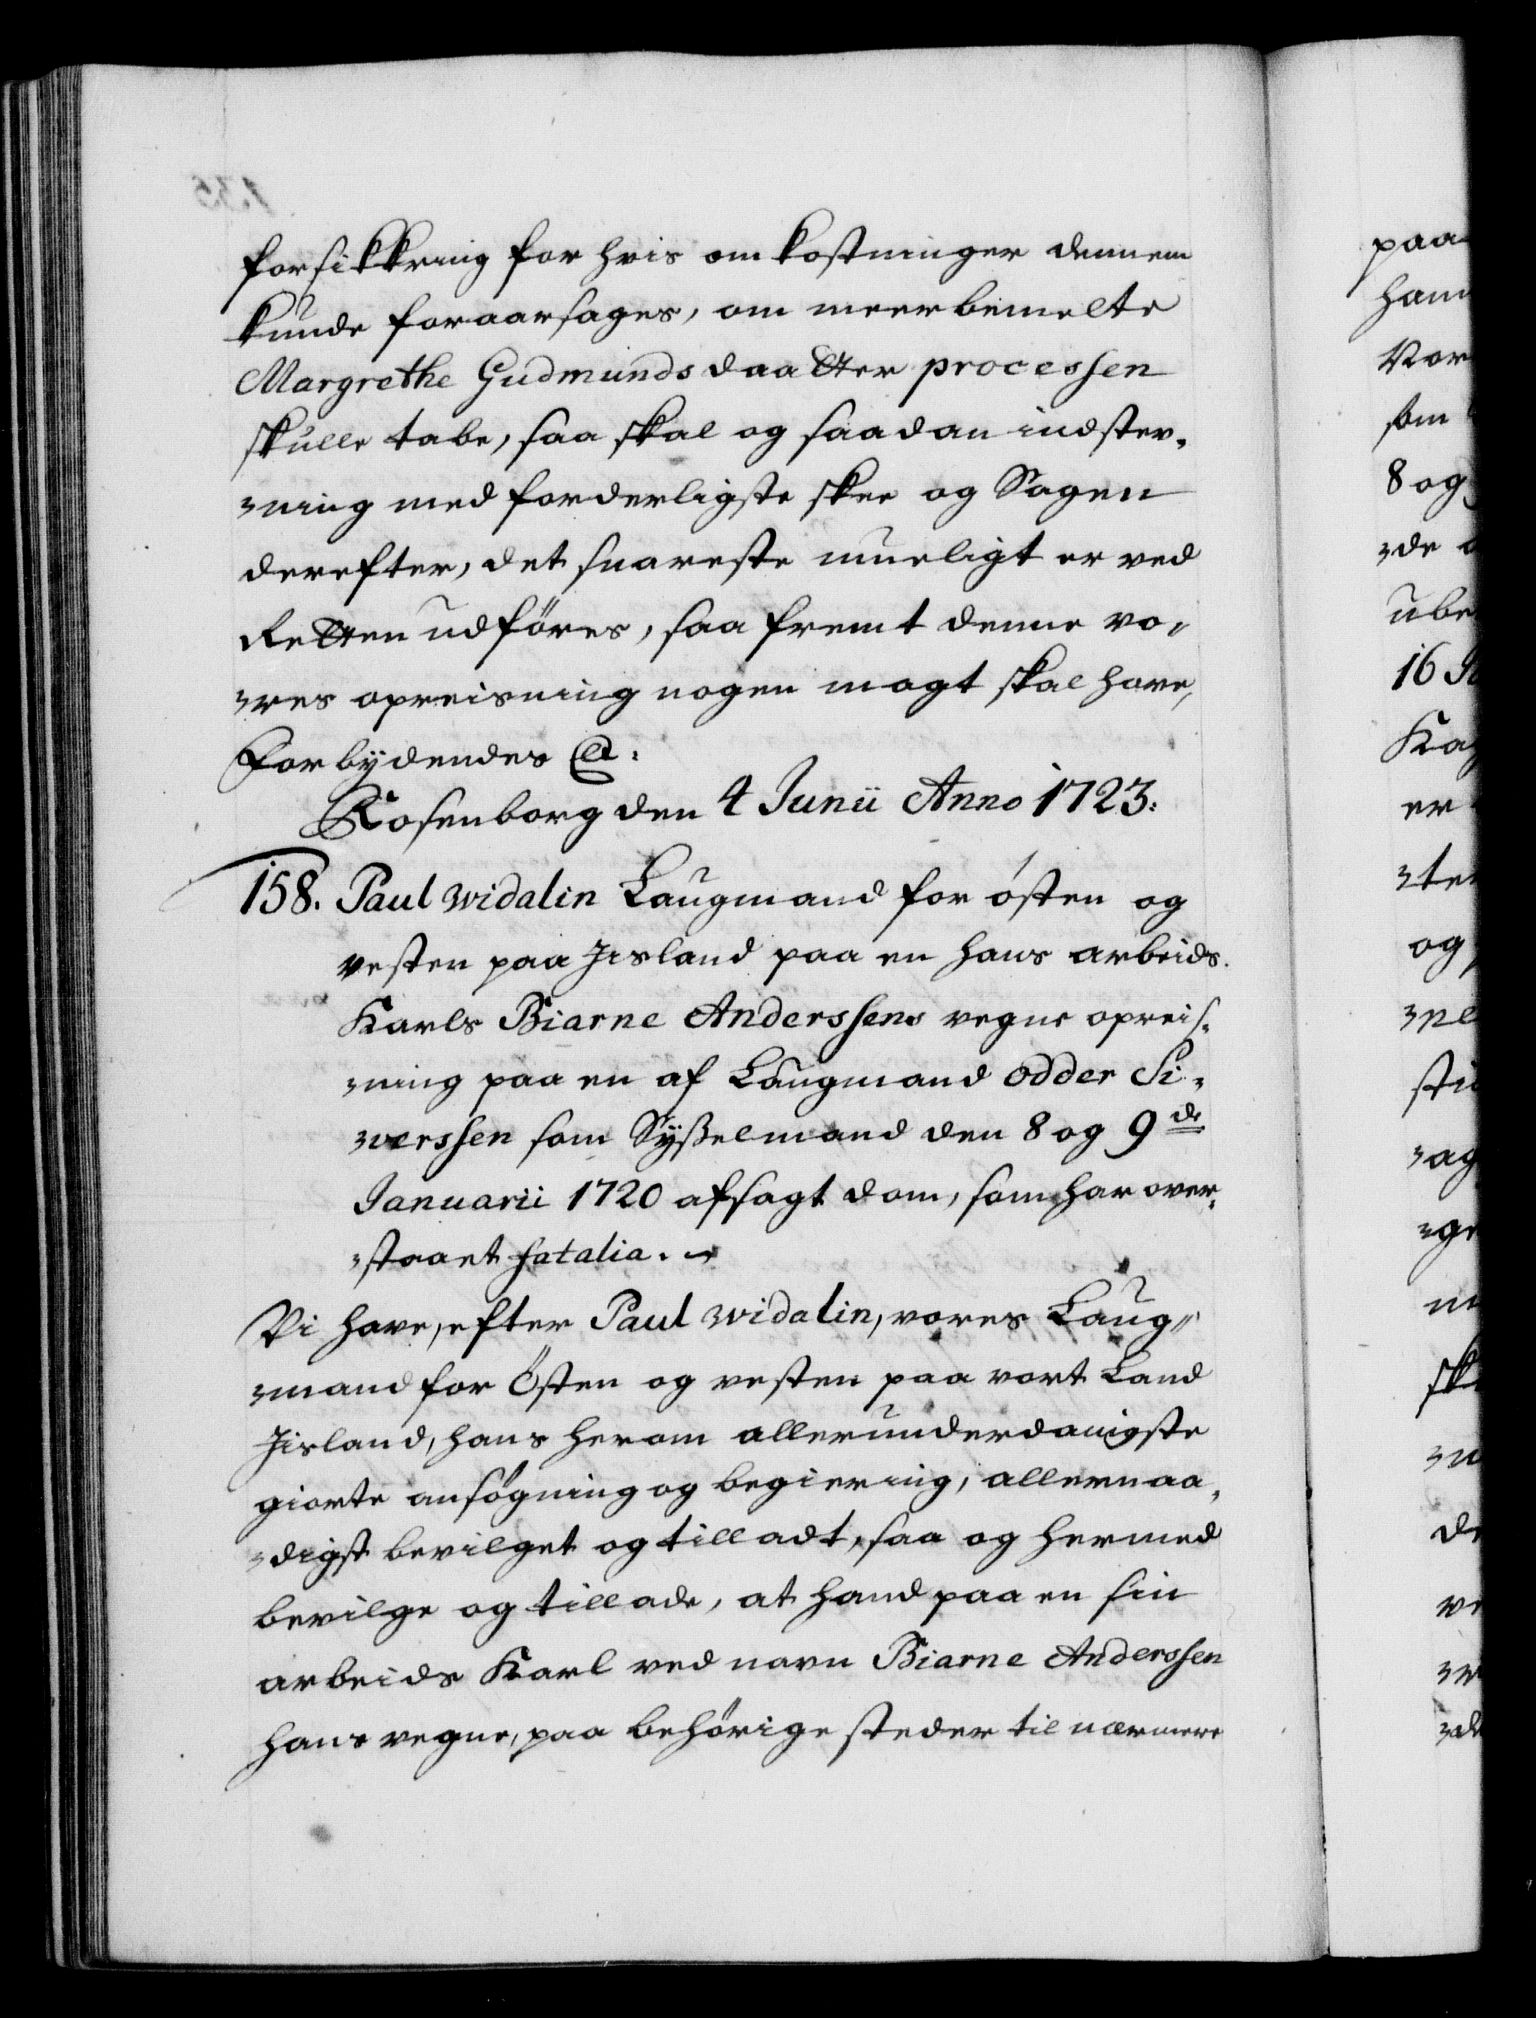 forsikkring for hvis omkostninger dennem
kunde foraarsages, om meerbemelte
Margrethe Gudmundsdaatter processen
skulle tabe, saa skal og saadan indstev-
-ning med forderligste skee og Sagen
derefter, det snareste mueligt er ved
Retten udföres, saa fremt denne vo-
-res opreisning nogen magt skal have,
Forbÿdendes &:
Rosenborg den 4 Junii Anno 1723.
158. Paul Widalin Laugmand for østen og
vesten paa Jisland paa en hans arbeids-
Karls Biarne Anderssens vegne opreis-
-ning paa en af Laugmand Odder Si-
-verssen som Sÿsselmand den 8 og 9de
Januarii 1720 afsagt dom, som har over-
-staaet fatalia.
Vi have, efter Paul Widalin, vores Laug-
-mand for Östen og vesten paa vort Land
Jisland, hans herom allerunderdanigste
giorte ansøgning og begiering, allernaa-
-digst bevilget og tilladt, saa og hermed
bevilge og tillade, at hand paa en sin
arbeids Karl ved navn Biarne Anderssen
hans vegne, paa behörige steder til nærmere
paa
ham
Vor
som
8 og
-de
ube
16
er
-ter
og
sti
-ag
-ge
de
ve